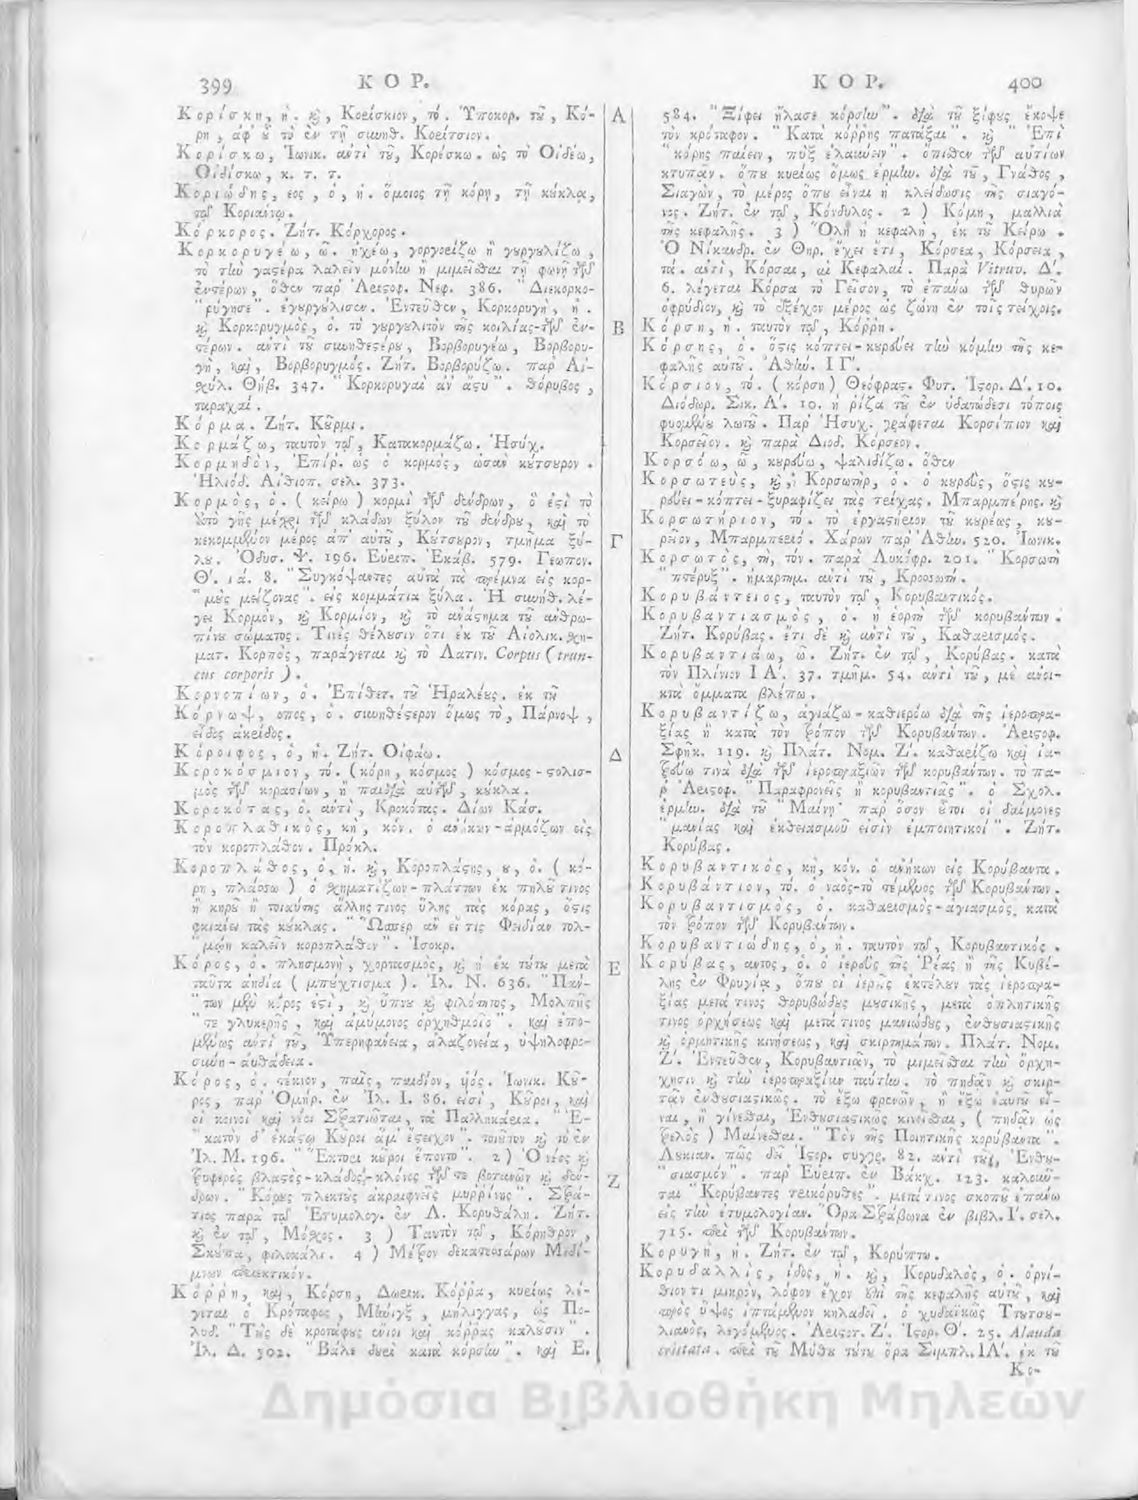 399 ΚΟΡ.
Κορίσκη, ἡ. καὶ, Κορίσκιον, τό. Ὑποκορ. τοῦ, Κό-
ρη, ἀφ' οὗ τὸ ἐν τῇ συνηθ. Κορίτσιον.
Κορίσκω, Ἰωνικ. ἀντὶ τοῦ, Κορέσκω. ὡς τὸ Οἰδέω,
Οἰδίσκω, κ. τ. τ.
Κοριώδης, εος, ὁ, ἡ. ὅμοιος τῇ κόρῃ, τῇ κούκλᾳ,
τῷ Κοριάννῳ.
Κόρκορος. Ζήτ. Κόρχορος.
Κορκορυγέω, ῶ. ἠχέω, γοργορίζω ἢ γουργουλίζω,
τὸ τὴν γαστέρα λαλεῖν μόνην ἢ μιμεῖσθαι τῇ φωνῇ τῶν
ἐντέρων, ὅθεν παρ' Ἀριστοφ. Νεφ. 386. "Διεκορκο-
"ρύγησε". ἐγουργούλισεν. Ἐντεῦθεν, Κορκορυγὴ, ἡ.
καὶ Κορκορυγμὸς, ὁ. τὸ γουργουλιτὸν τῆς κοιλίας-τῶν ἐν-
τέρων. ἀντὶ τοῦ συνηθεστέρου, Βορβορυγέω, Βορβορυ-
γὴ, καὶ, Βορβορυγμός. Ζήτ. Βορβορύζω. παρ' Αἰ-
σχύλ. Θήβ. 347. "Κορκορυγαὶ ἀν' ἄστυ". θόρυβος,
ταραχαί.
Κόρμα. Ζήτ. Κοῦρμι.
Κορμάζω, ταυτὸν τῷ, Κατακορμάζω. Ἡσύχ.
Κορμηδὸν, Ἐπίρ. ὡς ὁ κορμὸς, ὡσὰν κούτσουρον.
Ἡλιόδ. Αἰθιοπ. σελ. 373.
Κορμὸς, ὁ. (κείρω) κορμὶ τῶν δένδρων, ὅ ἐστι τὸ
ἀπὸ γῆς μέχρι τῶν κλάδων ξύλον τοῦ δένδρου, καὶ τὸ
κεκομμένον μέρος ἀπ' αὐτοῦ, Κούτσουρον, τμῆμα ξύ-
λου. Ὀδυσ. Ψ. 196. Εὐριπ. Ἑκάβ. 579. Γεωπον.
Θ'. ιά. 8. "Συγκόψαντες αὐτὰ τὰ πρέμνα εἰς κορ-
"μοὺς μείζονας". εἰς κομμάτια ξύλα. Ἡ συνήθ. λέ-
γει Κορμὸν, καὶ Κορμίον, καὶ τὸ ἀνάστημα τοῦ ἀνθρω-
πίνου σώματος. Τινὲς θέλουσιν ὅτι ἐκ τοῦ Αἰολικ. σχη-
ματ. Κορπὸς, παράγεται καὶ τὸ Λατιν. Corpus (trun-
cus corporis).
Κορνοπίων, ὁ. Ἐπίθετ. τοῦ Ἡρακλέους. ἐκ τοῦ
Κόρνωψ, οπος, ὁ. συνηθέστερον ὅμως τὸ, Πάρνοψ,
εἶδος ἀκρίδος.
Κόροιφος, ὁ, ἡ. Ζήτ. Οἰφάω.
Κοροκόσμιον, τό. (κόρη, κόσμος) κόσμος-στολισ-
μὸς τῶν κορασίων, ἢ παιδία αὐτῶν, κούκλα.
Κοροκότας, ὁ. ἀντὶ, Κροκότας. Δίων Κάσ.
Κοροπλαθικὸς, κὴ, κόν. ὁ ἀνήκων-ἁρμόζων εἰς
τὸν κοροπλάθον. Πρόκλ.
Κοροπλάθος, ὁ, ἡ. καὶ, Κοροπλάστης, ου, ὁ. (κό-
ρη, πλάσσω) ὁ σχηματίζων-πλάττων ἐκ πηλοῦ τινος
ἢ κηροῦ ἢ τοιαύτης ἄλλης τινος ὕλης τὰς κόρας, ὅστις
φκιάνει τὰς κούκλας. "Ὥσπερ ἂν εἴ τις Φειδίαν τολ-
"μῴη καλεῖν κοροπλάθον". Ἰσοκρ.
Κόρος, ὁ. πλησμονὴ, χορτασμὸς, καὶ ἡ ἐκ τούτου μετὰ
ταῦτα ἀηδία (μπούχτισμα). Ἰλ. Ν. 636. "Πάν-
"των μὲν κόρος ἐστὶ, καὶ ὕπνου καὶ φιλότητος, Μολπῆς
"τε γλυκερῆς, καὶ ἀμύμονος ὀρχηθμοῖο". καὶ ἑπο-
μένως ἀντὶ τοῦ, Ὑπερηφάνεια, ἀλαζονεία, ὑψηλοφρο-
σύνη-αὐθάδεια.
Κόρος, ὁ. τέκνον, παῖς, παιδίον, υἱός. Ἰωνικ. Κοῦ-
ρος, παρ' Ὁμήρ. ἐν Ἰλ. Ι. 86. εἰσὶ, Κοῦροι, καὶ
οἱ κοινοὶ καὶ νέοι Στρατιῶται, τὰ Παλληκάρια. "Ἑ-
"κατὸν δ' ἑκάστῳ Κοῦροι ἅμ' ἔστειχον". τοιοῦτον καὶ τὸ ἐν
Ἰλ. Μ. 196. "Ἕκτορι κοῦροι ἕποντο". 2) Ὁ νέος καὶ
τρυφερὸς βλαστὸς-κλάδος,-κλόνος τῶν τε βοτανῶν καὶ δέν-
δρων. "Κόρους πλεκτοὺς ἀκραιφνεῖς μυρρίνης". Στρά-
τιος παρὰ τῷ Ἐτυμολογ. ἐν Λ. Κορυθάλη. Ζήτ.
καὶ ἐν τῷ, Μόσχος. 3) Ταυτὸν τῷ, Κόρηθρον,
Σκούπα, φιλοκάλι. 4) Μέτρον δεκατεσσάρων Μεδί-
μνων περιεκτικόν.
Κόρρη, καὶ, Κόρση, Δωρικ. Κόρρα, κυρίως λέ-
γεται ὁ Κρόταφος, Μῆνιγξ, μήλιγγας, ὡς Πο-
λυδ. "Τοὺς δὲ κροτάφους ἔνιοι καὶ κόρρας καλοῦσιν".
Ἰλ. Δ. 502. "Βάλε δουρὶ κατὰ κόρσην". καὶ Ε.
Α
Β
Γ
Δ
Ε
Ζ
ΚΟΡ. 400
584. "Ξίφει ἤλασε κόρσην". διὰ τοῦ ξίφους ἔκοψε
τὸν κρόταφον. "Κατὰ κόρρης πατάξαι". καὶ "Ἐπὶ
"κόρης παίειν, πὺξ ἐλαύνειν". ὄπισθεν τῶν αὐτίων
κτυπᾶν. ὅπου κυρίως ὅμως ἑρμην. διὰ τοῦ, Γνάθος,
Σιαγὼν, τὸ μέρος ὅπου εἶναι ἡ κλείδωσις τῆς σιαγό-
νος. Ζήτ. ἐν τῷ, Κόνδυλος. 2) Κόμη, μαλλιὰ
τῆς κεφαλῆς. 3) Ὅλη ἡ κεφαλὴ, ἐκ τοῦ Κείρω.
Ὁ Νίκανδρ. ἐν Θηρ. ἔχει ἔτι, Κόρσεα, Κόρσεια,
τά. ἀντὶ, Κόρσαι, αἱ Κεφαλαί. Παρὰ Vitruv. Δ'.
6. λέγεται Κόρσα τὸ Γεῖσον, τὸ ἐπάνω τῶν θυρῶν
ὀφρύδιον, καὶ τὸ ἐξέχον μέρος ὡς ζώνη ἐν τοῖς τείχοις.
Κόρση, ἡ. ταυτὸν τῷ, Κόρρη.
Κόρσης, ὁ. ὅστις κόπτει-κουρεύει τὴν κόμην τῆς κε-
φαλῆς αὐτοῦ. Ἀθήν. ΙΓ'.
Κόρσιον, τό. (κόρση) Θεόφρας. Φυτ. Ἱστορ. Δ'. 10.
Διόδωρ. Σικ. Α'. 10. ἡ ῥίζα τοῦ ἐν ὑδατώδεσι τόποις
φυομένου λωτοῦ. Παρ' Ἡσυχ. γράφεται Κορσίπιον καὶ
Κορσεῖον. καὶ παρὰ Διοδ. Κόρσεον.
Κορσόω, ῶ, κουρεύω, ψαλιδίζω. ὅθεν
Κορσωτεὺς, καὶ, Κορσωτὴρ, ὁ. ὁ κουρεὺς, ὅστις κου-
ρεύει-κόπτει-ξυραφίζει τὰς τρίχας. Μπαρμπέρης. καὶ
Κορσωτήριον, τό. τὸ ἐργαστήριον τοῦ κουρέως, κου-
ρεῖον, Μπαρμπεριό. Χάρων παρ' Ἀθήν. 520. Ἰωνικ.
Κορσωτὸς, τὴ, τόν. παρὰ Λυκόφρ. 201. "Κορσωτὴ
"πτέρυξ". ἡμαρτημ. ἀντὶ τοῦ, Κροσσωτή.
Κορυβάντειος, ταυτὸν τῷ, Κορυβαντικός.
Κορυβαντιασμὸς, ὁ. ἡ ἑορτὴ τῶν κορυβάντων.
Ζήτ. Κορύβας. ἔτι δὲ καὶ ἀντὶ τοῦ, Καθαρισμός.
Κορυβαντιάω, ῶ. Ζήτ. ἐν τῷ, Κορύβας. κατὰ
τὸν Πλίνιον ΙΑ'. 37. τμῆμ. 54. ἀντὶ τοῦ, μὲ ἀνοι-
κτὰ ὄμματα βλέπω.
Κορυβαντίζω, ἁγιάζω-καθιερόω διὰ τῆς ἱεροπρα-
ξίας ἢ κατὰ τὸν τρόπον τῶν Κορυβάντων. Ἀριστοφ.
Σφῆκ. 119. καὶ Πλάτ. Νομ. Ζ'. καθαρίζω καὶ ἰα-
τρεύω τινὰ διὰ τῶν ἱεροπραξιῶν τῶν κορυβάντων. τὸ πα-
ρ' Ἀριστοφ. "Παραφρονεῖς ἢ κορυβαντιᾷς". ὁ Σχολ.
ἑρμην. διὰ τοῦ "Μαίνῃ παρ' ὅσον οὗτοι οἱ δαίμονες
"μανίας καὶ ἐκθειασμοῦ εἰσὶν ἐμποιητικοί". Ζήτ.
Κορύβας.
Κορυβαντικὸς, κὴ, κόν. ὁ ἀνήκων εἰς Κορύβαντα.
Κορυβάντιον, τό. ὁ ναὸς-τὸ τέμενος τῶν Κορυβάντων.
Κορυβαντισμὸς, ὁ. καθαρισμὸς-ἁγιασμὸς, κατὰ
τὸν τρόπον τῶν Κορυβάντων.
Κορυβαντιώδης, ὁ, ἡ. ταυτὸν τῷ, Κορυβαντικός.
Κορύβας, αντος, ὁ. ὁ ἱερεὺς τῆς Ῥέας ἢ τῆς Κυβέ-
λης ἐν Φρυγίᾳ, ὅπου οἱ ἱερεῖς ἐκτέλουν τὰς ἱεροπρα-
ξίας μετὰ τινος θορυβώδους μουσικῆς, μετὰ ὁπλητικῆς
τινος ὀρχήσεως καὶ μετὰ τινος μανιώδους, ἐνθουσιαστικῆς
καὶ ὁρμητικῆς κινήσεως, καὶ σκιρτημάτων. Πλάτ. Νομ.
Ζ'. Ἐντεῦθεν, Κορυβαντιᾶν, τὸ μιμεῖσθαι τὴν ὄρχη-
χησιν καὶ τὴν ἱεροπραξίαν ταύτην. τὸ πηδᾶν καὶ σκιρ-
τᾶν ἐνθουσιαστικῶς. τὸ ἔξω φρενῶν, ἢ ἔξω ἑαυτοῦ εἶ-
ναι, ἢ γίνεσθαι, Ἐνθουσιαστικῶς κινεῖσθαι, (πηδᾶν ὡς
τρελὸς) Μαίνεσθαι. "Τὸν τῆς Ποιητικῆς κορύβαντα".
Λουκιαν. πῶς δεῖ Ἱστορ. συγγρ. 82. ἀντὶ τοῦ, "Ἐνθου-
"σιασμόν". παρ' Εὐριπ. ἐν Βάκχ. 123. καλοῦν-
ται "Κορύβαντες τρικόρυθες". μετὰ τινος σκοποῦ ἐπάνω
εἰς τὴν ἐτυμολογίαν. Ὅρα Στράβωνα ἐν βιβλ. Ι'. σελ.
715. περὶ τῶν Κορυβάντων.
Κορυγὴ, ἡ. Ζήτ. ἐν τῷ, Κορύπτω.
Κορυδαλλὶς, ίδος, ἡ. καὶ, Κορυδαλὸς, ὁ. ὀρνί-
θιόν τι μικρὸν, λόφον ἔχον ἐπὶ τῆς κεφαλῆς αὐτοῦ, καὶ
πρὸς ὕψος ἱπτάμενον κηλαδεῖ. ὁ χυδαϊκῶς Τζουτζου-
λιανὸς, λεγόμενος. Ἀριστοτ. Ζ'. Ἱστορ. Θ'. 25. Alauda
cristata. περὶ τοῦ Μύθου τούτου ὅρα Σιμπλ. ΙΑ'. ἐκ τοῦ
Κο-
Δημόσια Βιβλιοθήκη Μηλεών